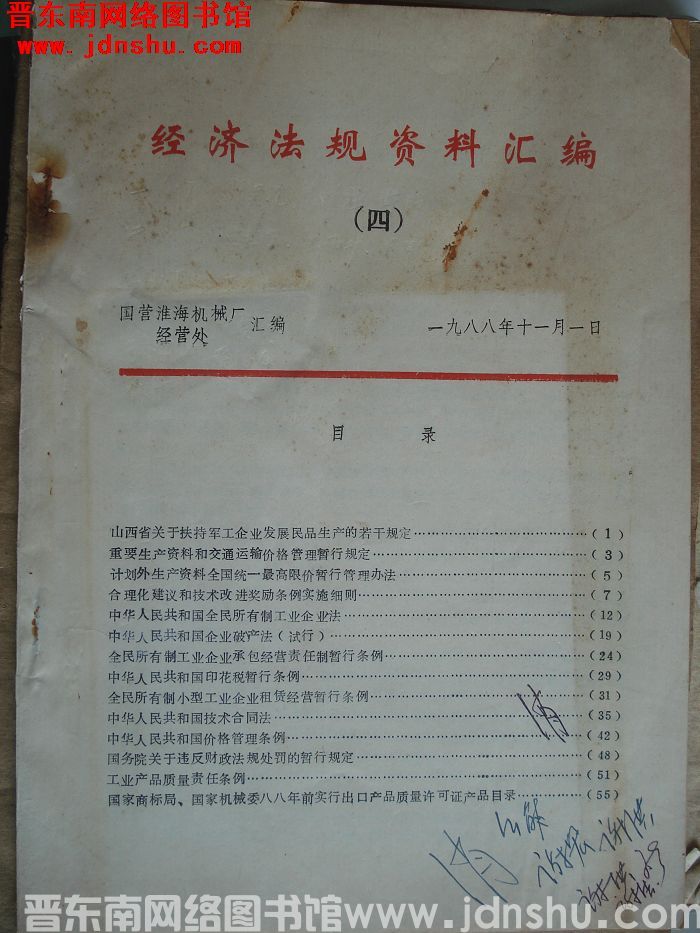 晋东南网络图书馆
www.jdnshu.com
经济法规资料汇编
（四）
国营淮海机械厂
经营处
汇编
一九八八年十一月一日
目 录
山西省关于扶持军工企业发展民品生产的若干规定……………………（1）
重要生产资料和交通运输价格管理暂行规定……………………（3）
计划外生产资料全国统一最高限价暂行管理办法……………………（5）
合理化建议和技术改进奖励条例实施细则……………………（7）
中华人民共和国全民所有制工业企业法……………………（12）
中华人民共和国企业破产法（试行）……………………（19）
全民所有制工业企业承包经营责任制暂行条例……………………（24）
中华人民共和国印花税暂行条例……………………（29）
全民所有制小型工业企业租赁经营暂行条例……………………（31）
中华人民共和国技术合同法……………………（35）
中华人民共和国价格管理条例……………………（42）
国务院关于违反财政法规处罚的暂行规定……………………（48）
工业产品质量责任条例……………………（51）
国家商标局、国家机械委八八年前实行出口产品质量许可证产品目录……（55）
晋东南网络图书馆www.jdnshu.com